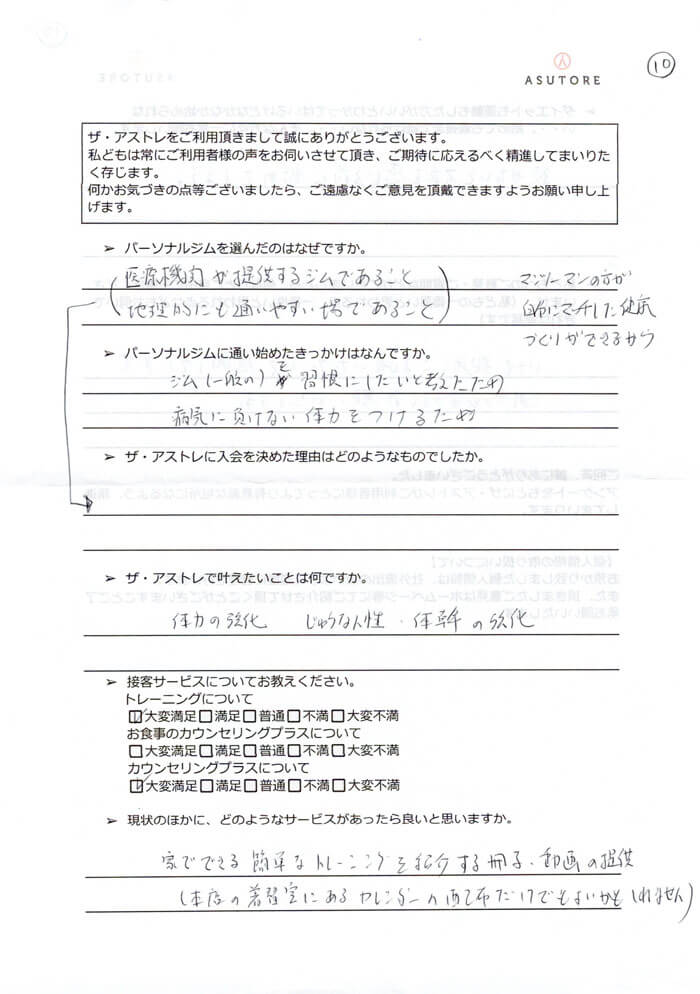 ASUTORE
⑩
ザ・アストレをご利用頂きまして誠にありがとうございます。
私どもは常にご利用者様の声をお伺いさせて頂き、ご期待に応えるべく精進してまいりた
く存じます。
何かお気づきの点等ございましたら、ご遠慮なくご意見を頂戴できますようお願い申し上
げます。
➢ パーソナルジムを選んだのはなぜですか。
医療機関が提供するジムであること
地理的にも通いやすい場であること
マンツーマンの方が
自分にマッチした健康
づくりができるから
➢ パーソナルジムに通い始めたきっかけはなんですか。
ジム(一般の)を習慣にしたいと考えたため
病気に負けない体力をつけるため
➢ ザ・アストレに入会を決めた理由はどのようなものでしたか。
➢ ザ・アストレで叶えたいことは何ですか。
体力の強化 じゅうなん性・体幹の強化
➢ 接客サービスについてお教えください。
トレーニングについて
☑大変満足☐満足☐普通☐不満☐大変不満
お食事のカウンセリングプラスについて
☐大変満足☐満足☐普通☐不満☐大変不満
カウンセリングプラスについて
☑大変満足☐満足☐普通☐不満☐大変不満
➢ 現状のほかに、どのようなサービスがあったら良いと思いますか。
家でできる簡単なトレーニングを紹介する冊子・動画の提供
(本店の着替室にあるカレンダーの配布だけでもよいかもしれません)